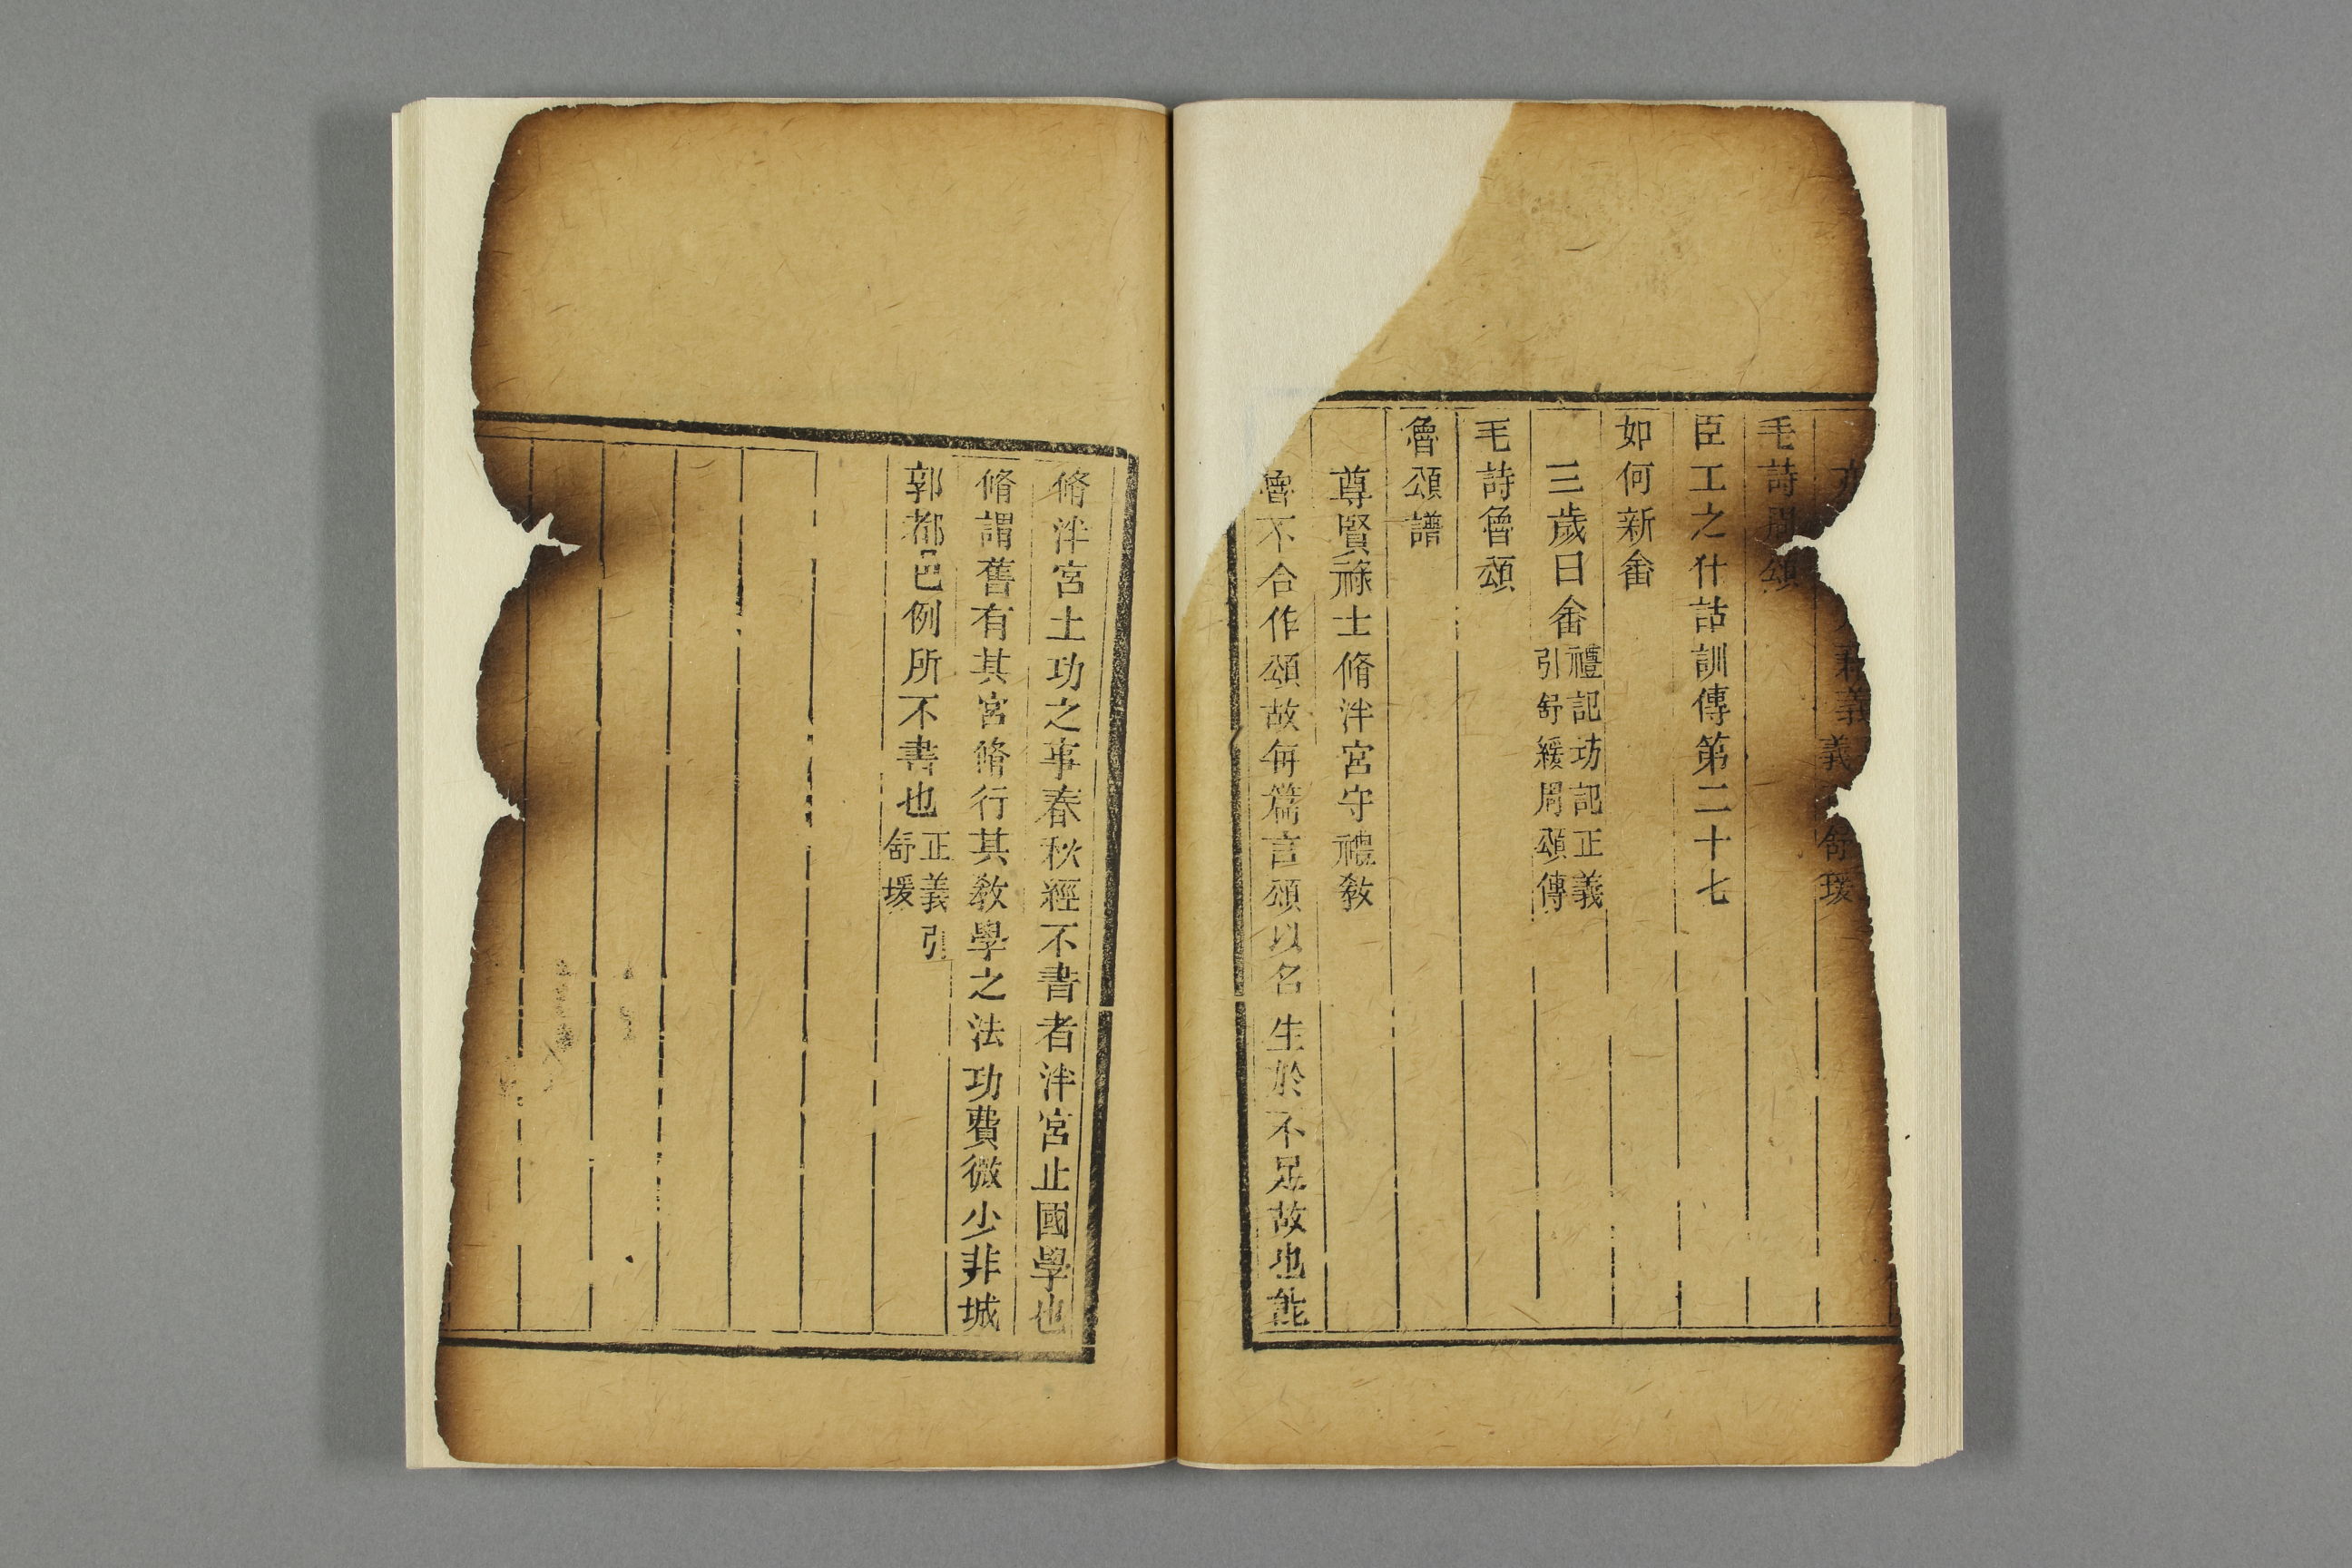 義 舒瑗
毛詩周頌
臣工之什詁訓傳第二十七
如何新畬
三歲曰畬禮記坊記正義引舒緩周頌傳
毛詩魯頌
魯頌譜
尊賢祿士脩泮宮守禮敎
魯不合作頌故每篇言頌以名生於不足故也能
脩泮宮土功之事春秋經不書者泮宮止國學也
脩謂舊有其宮脩行其敎學之法功費微少非城
郭都邑例所不書也正義引舒瑗